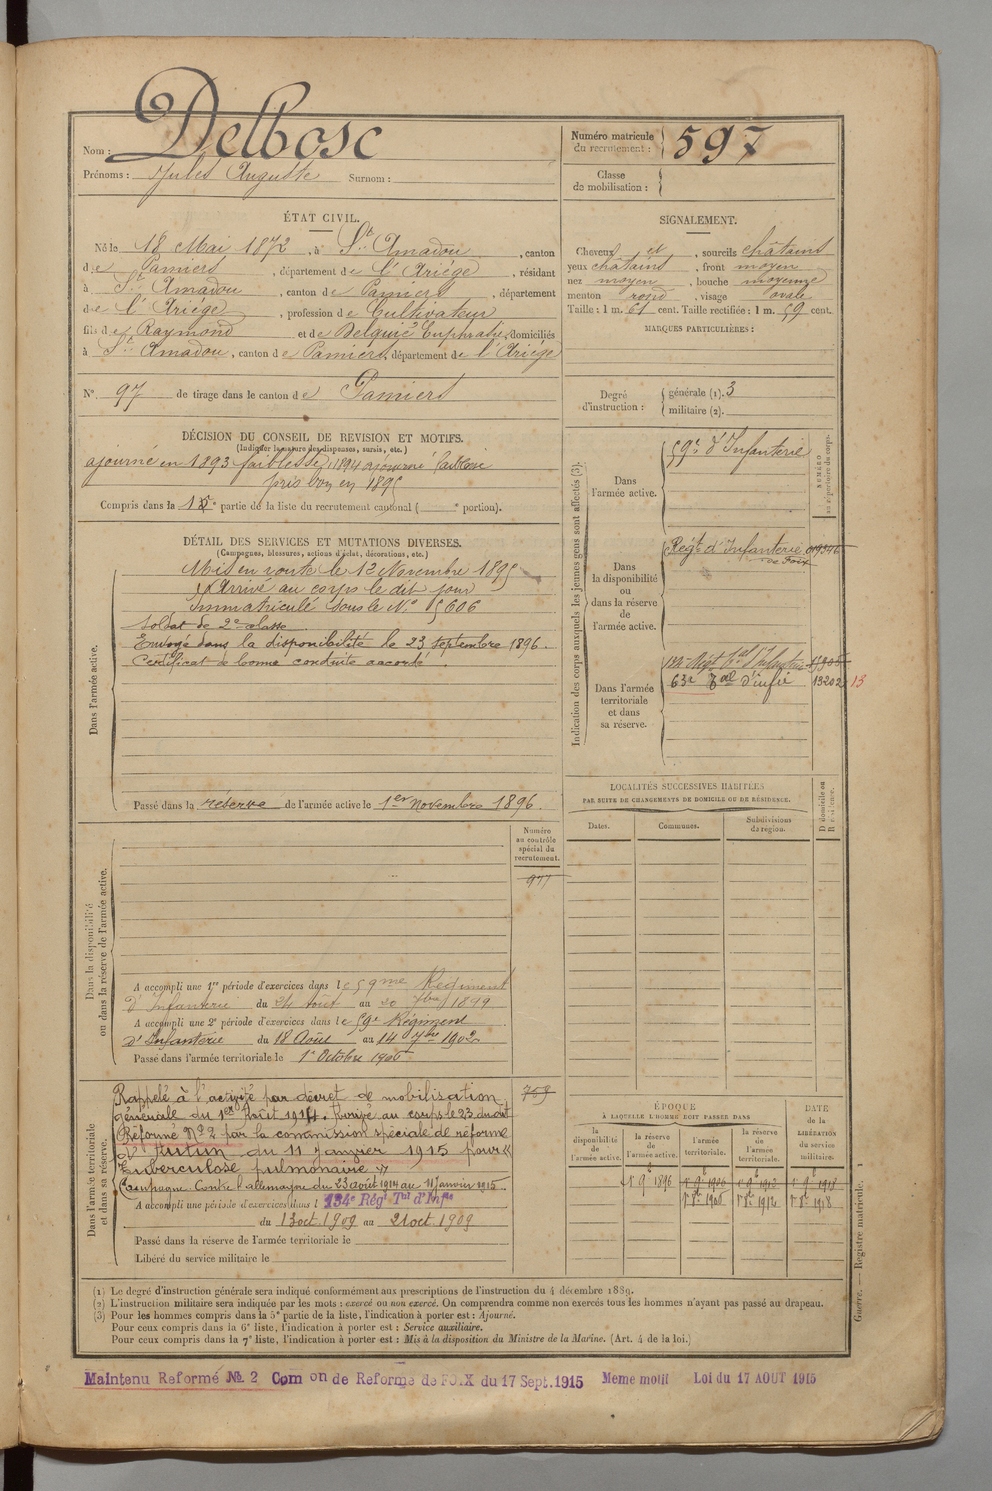 Nom : Delbosc
Prénoms : Jules Auguste Surnom :
Numéro matricule du recrutement : 597
Classe de mobilisation :
ÉTAT CIVIL.
Né le 18 Mai 1872, à St. Amadou, canton
de Pamiers, département de l'Ariége, résidant
à St. Amadou, canton de Pamiers, département
de l'Ariége, profession de Cultivateur
fils de Raymond et de Delquié Euphrasie, domiciliés
à St. Amadou, canton de Pamiers, département de l'Ariége
N° 97 de tirage dans le canton de Pamiers
SIGNALEMENT.
Cheveux et, sourcils châtains
yeux châtains, front moyen
nez moyen, bouche moyenne
menton rond, visage ovale
Taille : 1 m. 61 cent. Taille rectifiée : 1 m. 59 cent.
MARQUES PARTICULIÈRES :
Degré d'instruction : générale (1). 3
militaire (2).
DÉCISION DU CONSEIL DE REVISION ET MOTIFS.
(Indiquer la nature des dispenses, sursis, etc.)
ajourné en 1893 faiblesse, 1894 ajourné faiblesse
pris bon en 1895
Compris dans la 1e partie de la liste du recrutement cantonal ( e portion).
DÉTAIL DES SERVICES ET MUTATIONS DIVERSES.
(Campagnes, blessures, actions d'éclat, décorations, etc.)
Dans l'armée active.
Mis en route le 12 Novembre 1895
Arrivé au corps le dit jour
Immatriculé sous le N° 5606
Soldat de 2e classe
Envoyé dans la disponibilité le 23 septembre 1896.
Certificat de bonne conduite accordé.
Passé dans la réserve de l'armée active le 1er novembre 1896.
Indication des corps auxquels les jeunes gens sont affectés (3).
NUMÉRO au répertoire du corps.
Dans l'armée active.
59e d'Infanterie
Dans la disponibilité ou dans la réserve de l'armée active.
Régt. d'Infanterie
de Foix
Dans l'armée territoriale et dans sa réserve.
134e Régt. Tal d'Infanterie
63e Tal d'infie 13202 13
LOCALITÉS SUCCESSIVES HABITÉES
PAR SUITE DE CHANGEMENTS DE DOMICILE OU DE RÉSIDENCE.
Dates. Communes. Subdivisions de région. D domicile ou R résidence.
Numéro au contrôle spécial du recrutement.
977
Dans la disponibilité ou dans la réserve de l'armée active.
A accompli une 1re période d'exercices dans le 59me Régiment
d'Infanterie du 24 Août au 20 7bre 1899
A accompli une 2e période d'exercices dans le 59e Régiment
d'Infanterie du 18 Août au 14 7bre 1902
Passé dans l'armée territoriale le 1er Octobre 1906
Dans l'armée territoriale et dans sa réserve.
Rappelé à l'activité par décret de mobilisation
générale du 1er Août 1914. Arrivé au corps le 23 du dit
Réformé N° 2 par la commission spéciale de réforme
d'Autun du 11 janvier 1915 pour «
Tuberculose pulmonaire »
Campagne Contre l'allemagne du 23 août 1914 au 11 Janvier 1915.
A accompli une période d'exercices dans l 134e Régt Tal d'Infie
du 13 oct. 1909 au 21 oct. 1909
Passé dans la réserve de l'armée territoriale le
Libéré du service militaire le
ÉPOQUE
À LAQUELLE L'HOMME DOIT PASSER DANS
la disponibilité de l'armée active.
la réserve de l'armée active.
l'armée territoriale.
la réserve de l'armée territoriale.
DATE de la LIBÉRATION du service militaire.
(1) Le degré d'instruction générale sera indiqué conformément aux prescriptions de l'instruction du 4 décembre 1889.
(2) L'instruction militaire sera indiquée par les mots : exercé ou non exercé. On comprendra comme non exercés tous les hommes n'ayant pas passé au drapeau.
(3) Pour les hommes compris dans la 5e partie de la liste, l'indication à porter est : Ajourné.
Pour ceux compris dans la 6e liste, l'indication à porter est : Service auxiliaire.
Pour ceux compris dans la 7e liste, l'indication à porter est : Mis à la disposition du Ministre de la Marine. (Art. 4 de la loi.)
Guerre. — Registre matricule. 1
Maintenu Reformé No. 2 Com on de Reforme de FOIX du 17 Sept. 1915 Meme motif Loi du 17 AOUT 1915